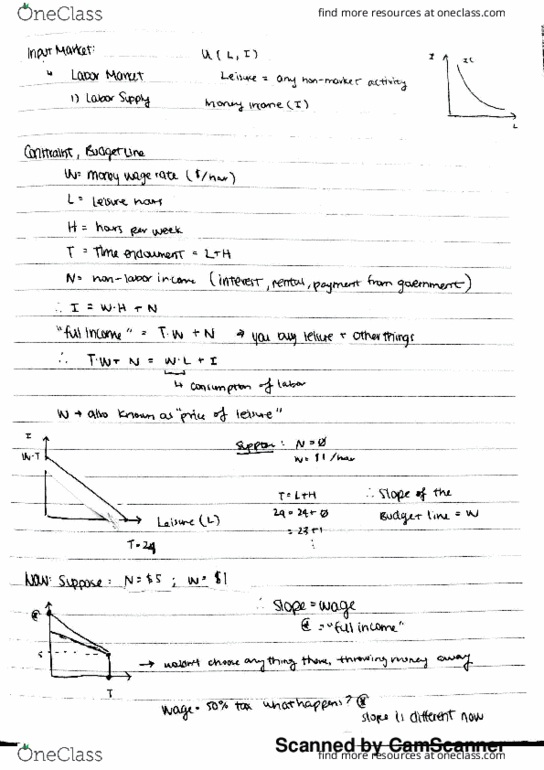 OneClass
find more resources at oneclass.com
Input Market:
U(L, I)
↳ Labor Market
Leisure = any non-market activity
1) Labor Supply
Money income (I)
I
IC
L
Constraint, Budget Line
W = money wage rate ($/hour)
L = leisure hours
H = hours per week
T = Time endowment = L+H
N = non-labor income (interest, rental, payment from government)
∴ I = W·H + N
"full income" = T·W + N → you buy leisure + other things
∴ T·W + N = W·L + I
↳ consumption of labor
W → also known as "price of leisure"
I
W·T
Leisure (L)
T=24
Suppose: N=Ø
W= $1/hour
T = L+H
24 = 24+Ø
= 23+1
⋮
∴ Slope of the
Budget line = W
Now: Suppose: N=$5 ; W= $1
5
T
∴ Slope = wage
= "full income"
→ wouldn't choose anything there, throwing money away
wage = 50% tax what happens?
slope is different now
Scanned by CamScanner
OneClass
find more resources at oneclass.com